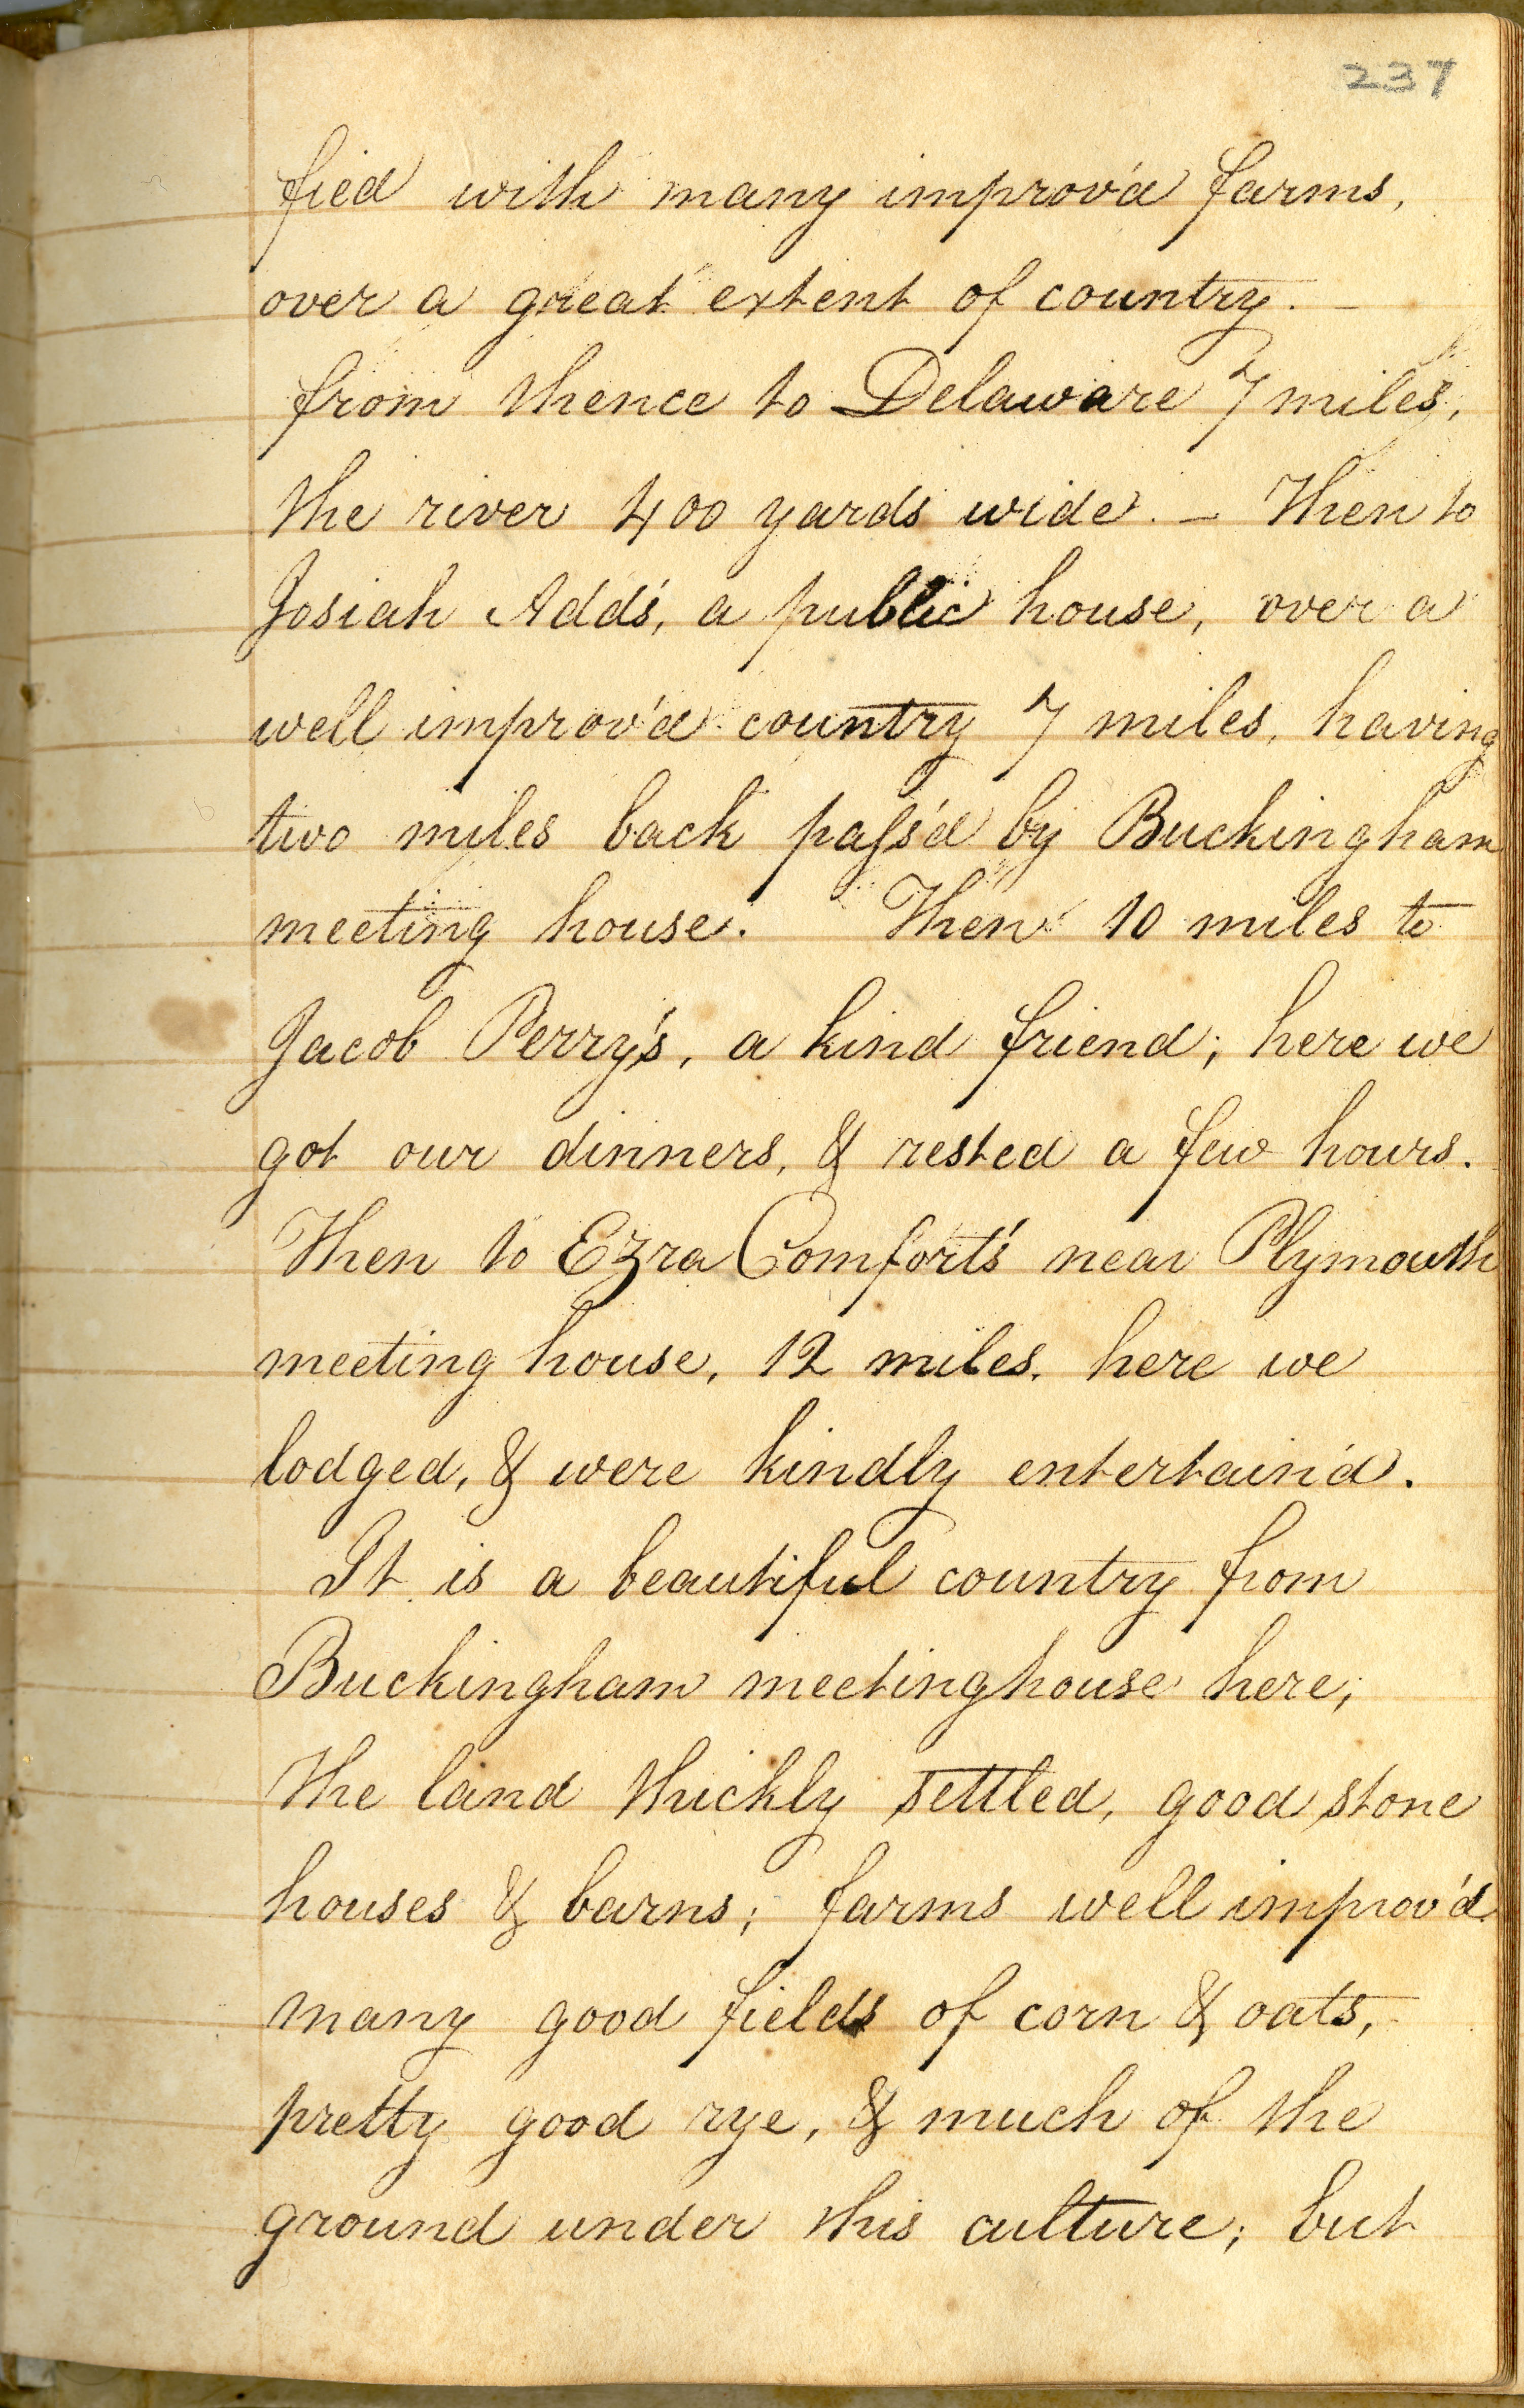 237
fied with many improv'd farms,
over a great extent of country. —
from thence to Delaware 7 miles,
the river 400 yards wide. — Then to
Josiah Add's, a public house, over a
well improv'd country 7 miles, having
two miles back pass'd by Buckingham
meeting house. Then 10 miles to
Jacob Perry's, a kind friend; here we
got our dinners, & rested a few hours.
Then to Ezra Comfort's near Plymouth
meeting house, 12 miles. here we
lodged, & were kindly entertain'd.
It is a beautiful country from
Buckingham meetinghouse here;
the land thickly settled, good stone
houses & barns; farms well improv'd
many good fields of corn & oats,
pretty good rye, & much of the
ground under this culture; but